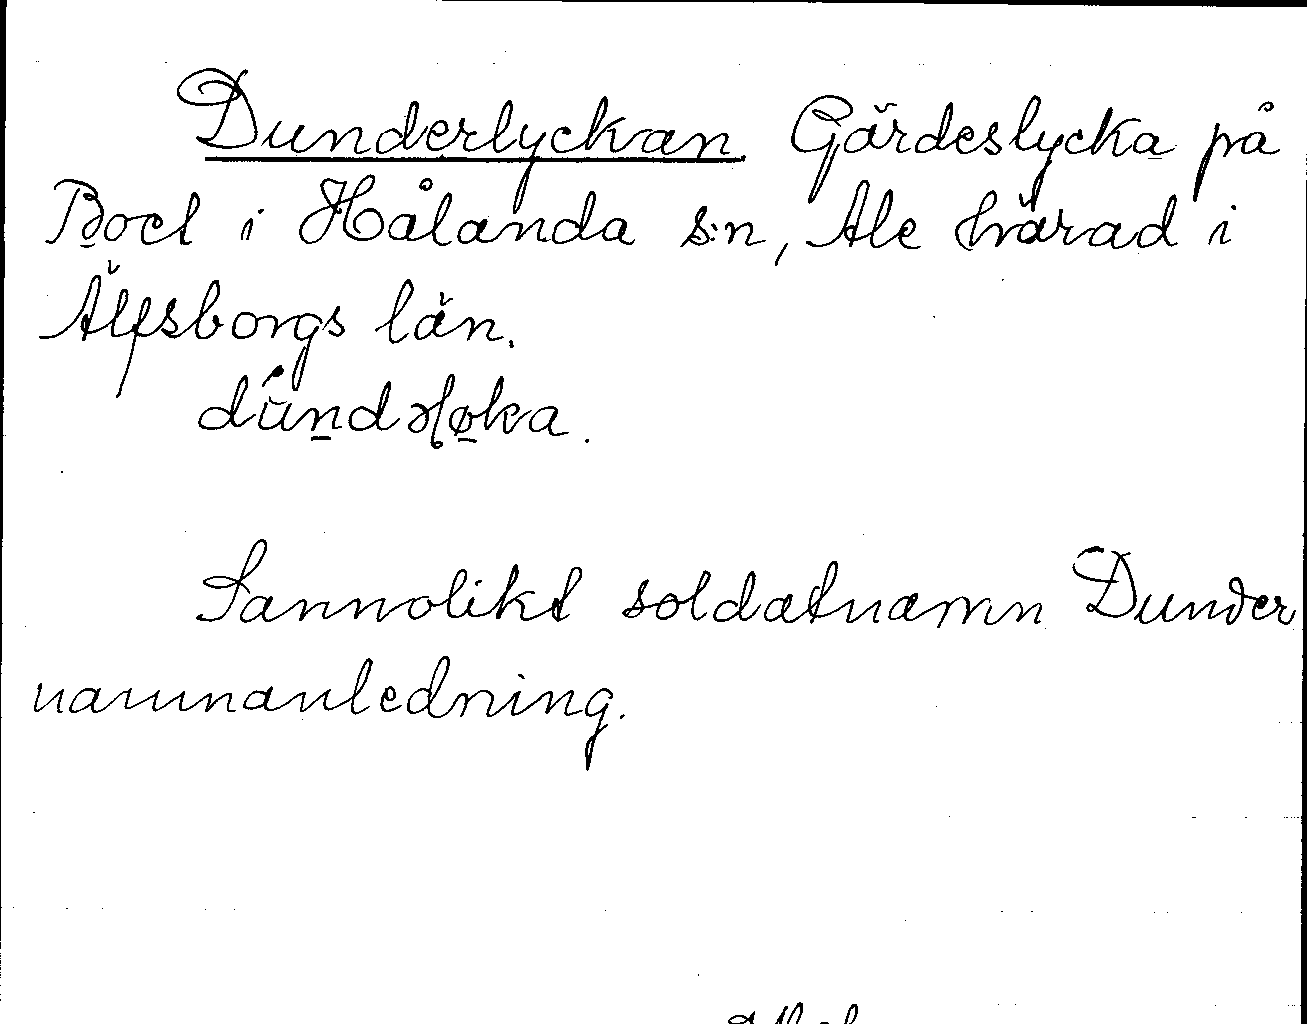 Dunderlyckan. Gärdeslycka på
Boel i Hålanda s:n, Ale härad i
Älfsborgs län.
Sannolikt soldatnamn Dunder
namnanledning.